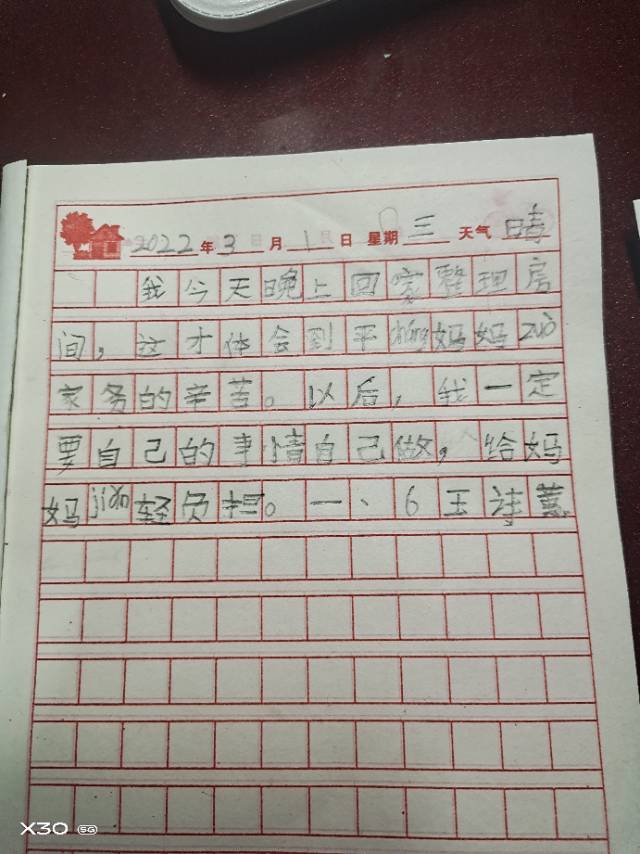 2022年3月1日 星期三 天气 晴
我今天晚上回家整理房
间，这才体会到平cháng妈妈zuò
家务的辛苦。以后，我一定
要自己的事情自己做，给妈
妈jiǎn轻负担。一、6王诗薏
X30 5G